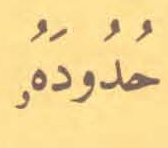 حُدُودَهُۥ